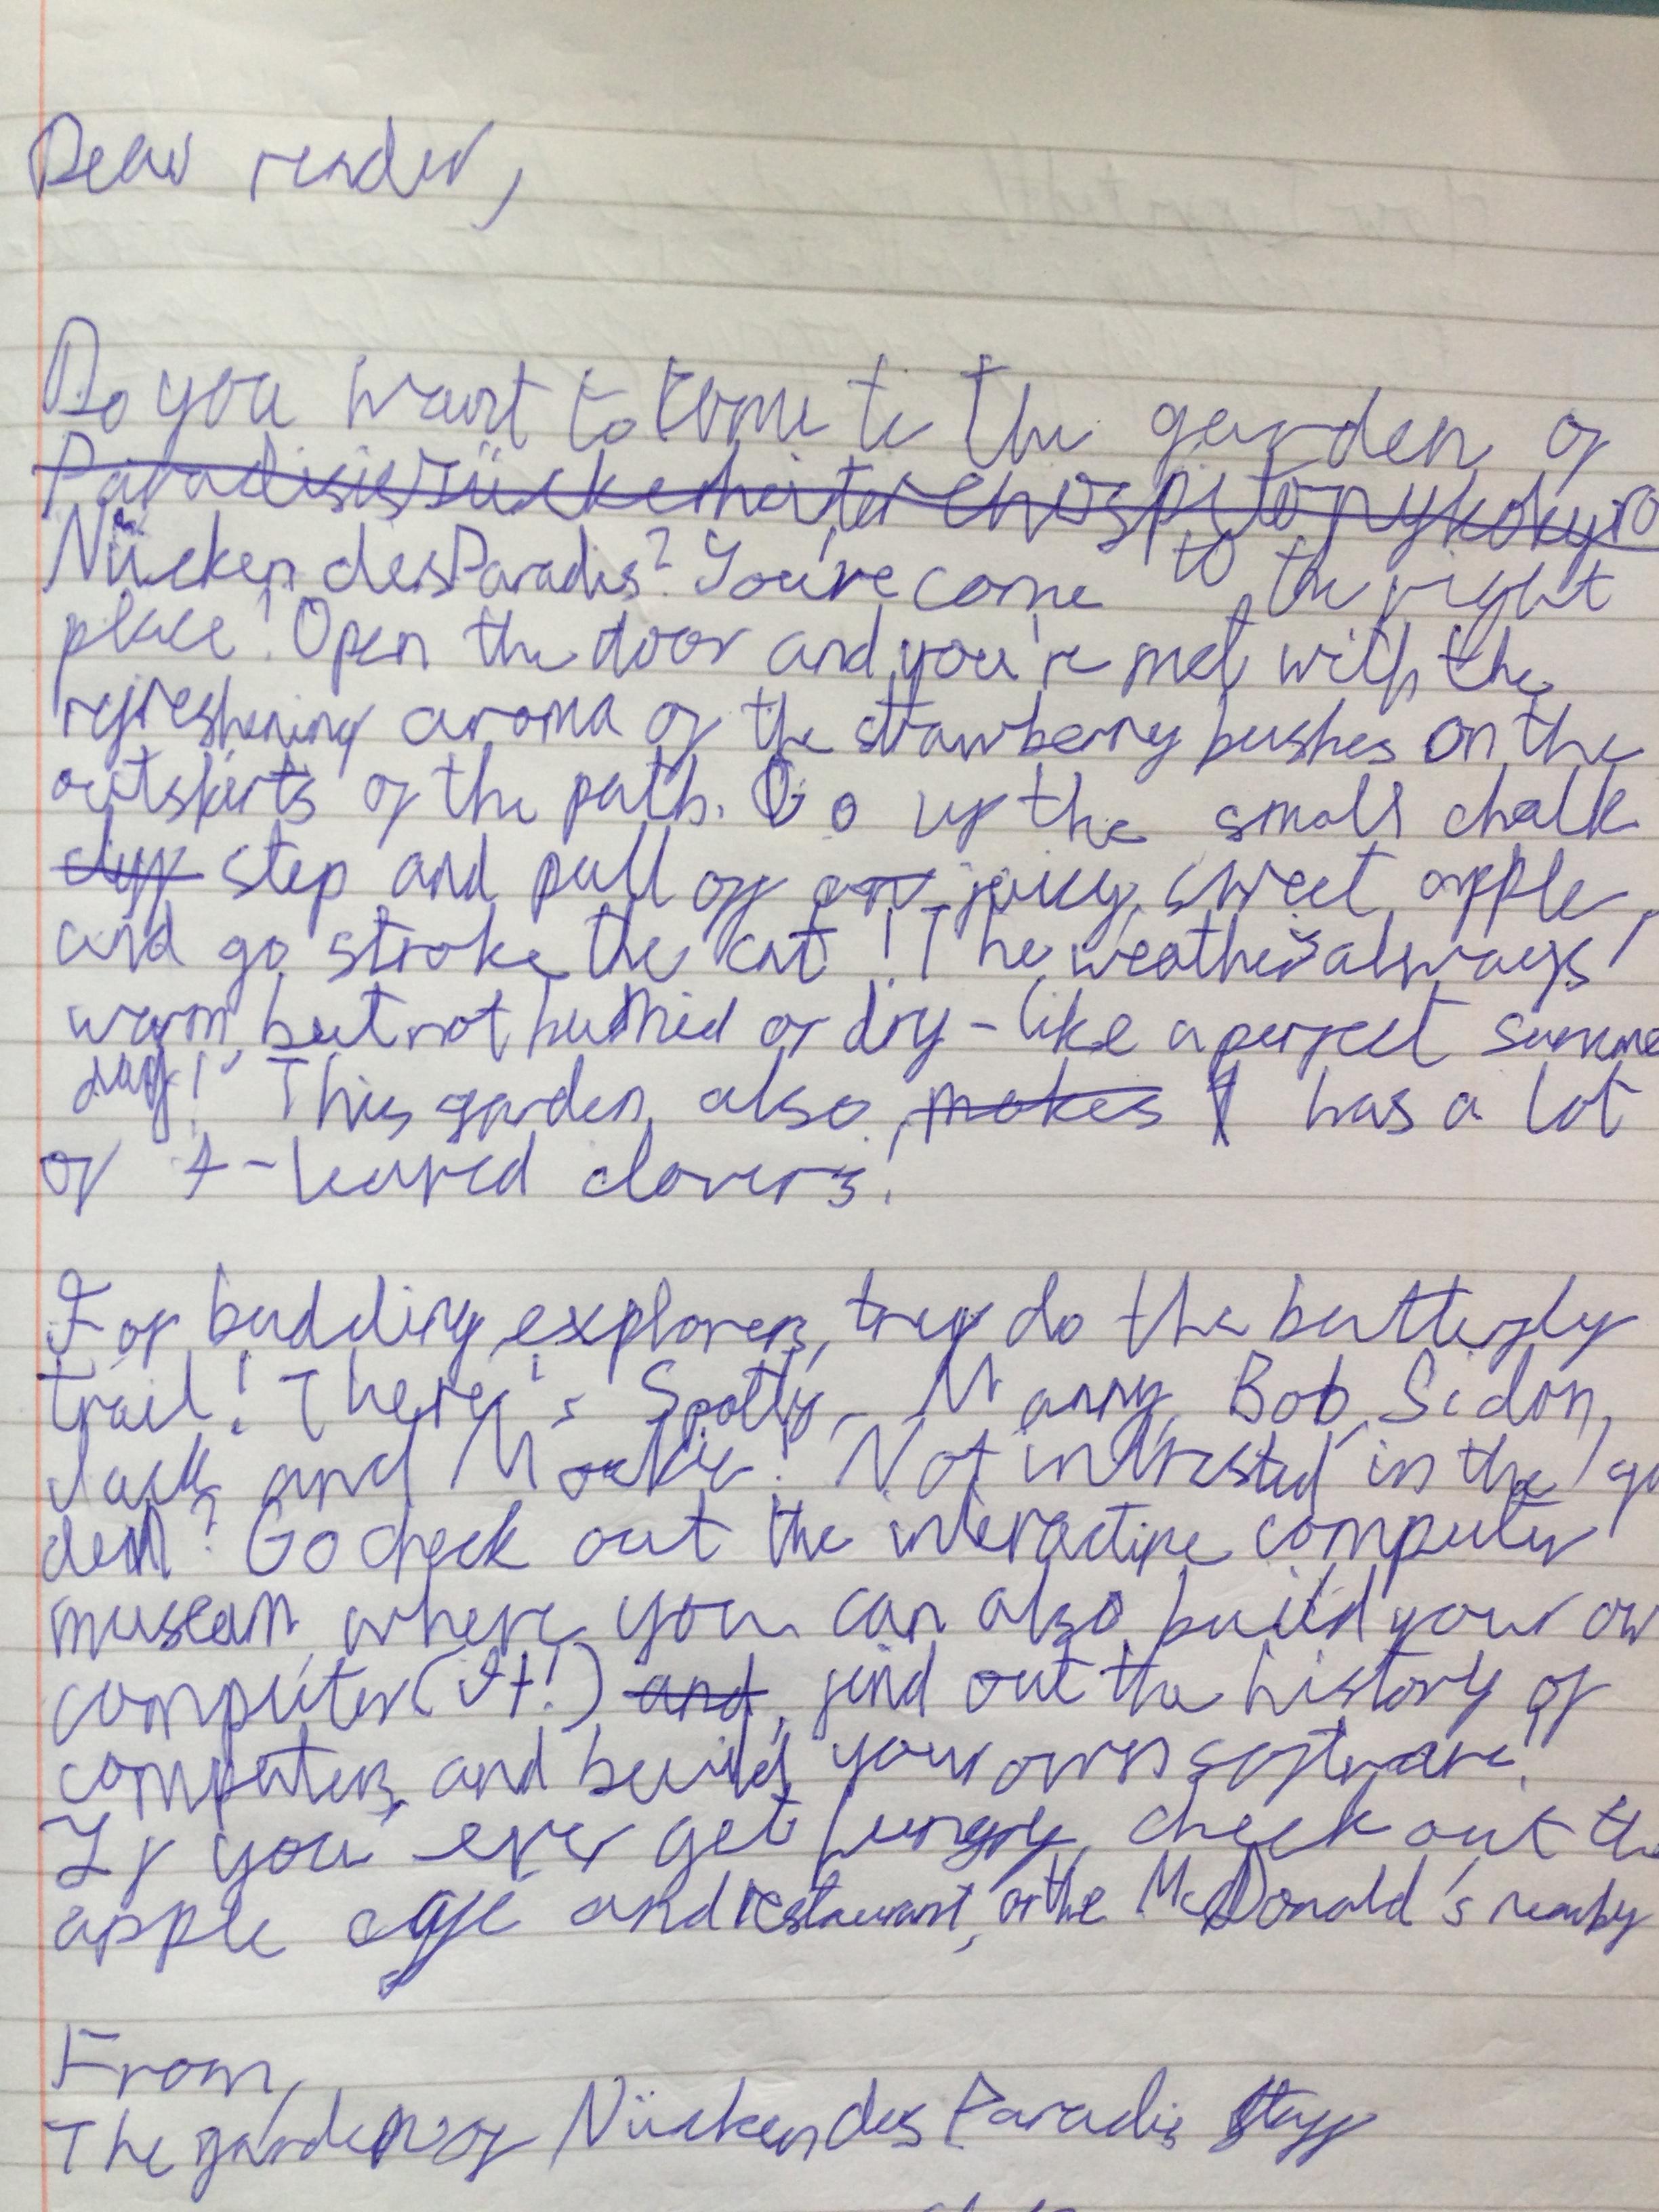 Dear reader,
Do you want to come to the garden of
Nücken des Paradis? You're come to the right
place! Open the door and you're met with the
refreshening aroma of the strawberry bushes on the
outskirts of the path. Go up the small chalk
cliff step and pull off an juicy, sweet apple,
and go stroke the cat! The weather's always
warm, but not humid or dry - like a perfect summe
day! This garden also makes has a lot
of 4-leaved clovers!
For budding explorers, try do the butterfly
trail! There's Spotty, Manny, Bob, Sidon,
Jack and! Not intrested in the gar
den? Go check out the interactive computer
museum, where you can also build your ow
computer (it!) and find out the history of
computers, and build your own software!
If you ever get hungry, check out the
apple cafe and restaurant, or the McDonald's nearby
From,
The garden of Nücken des Paradis staff